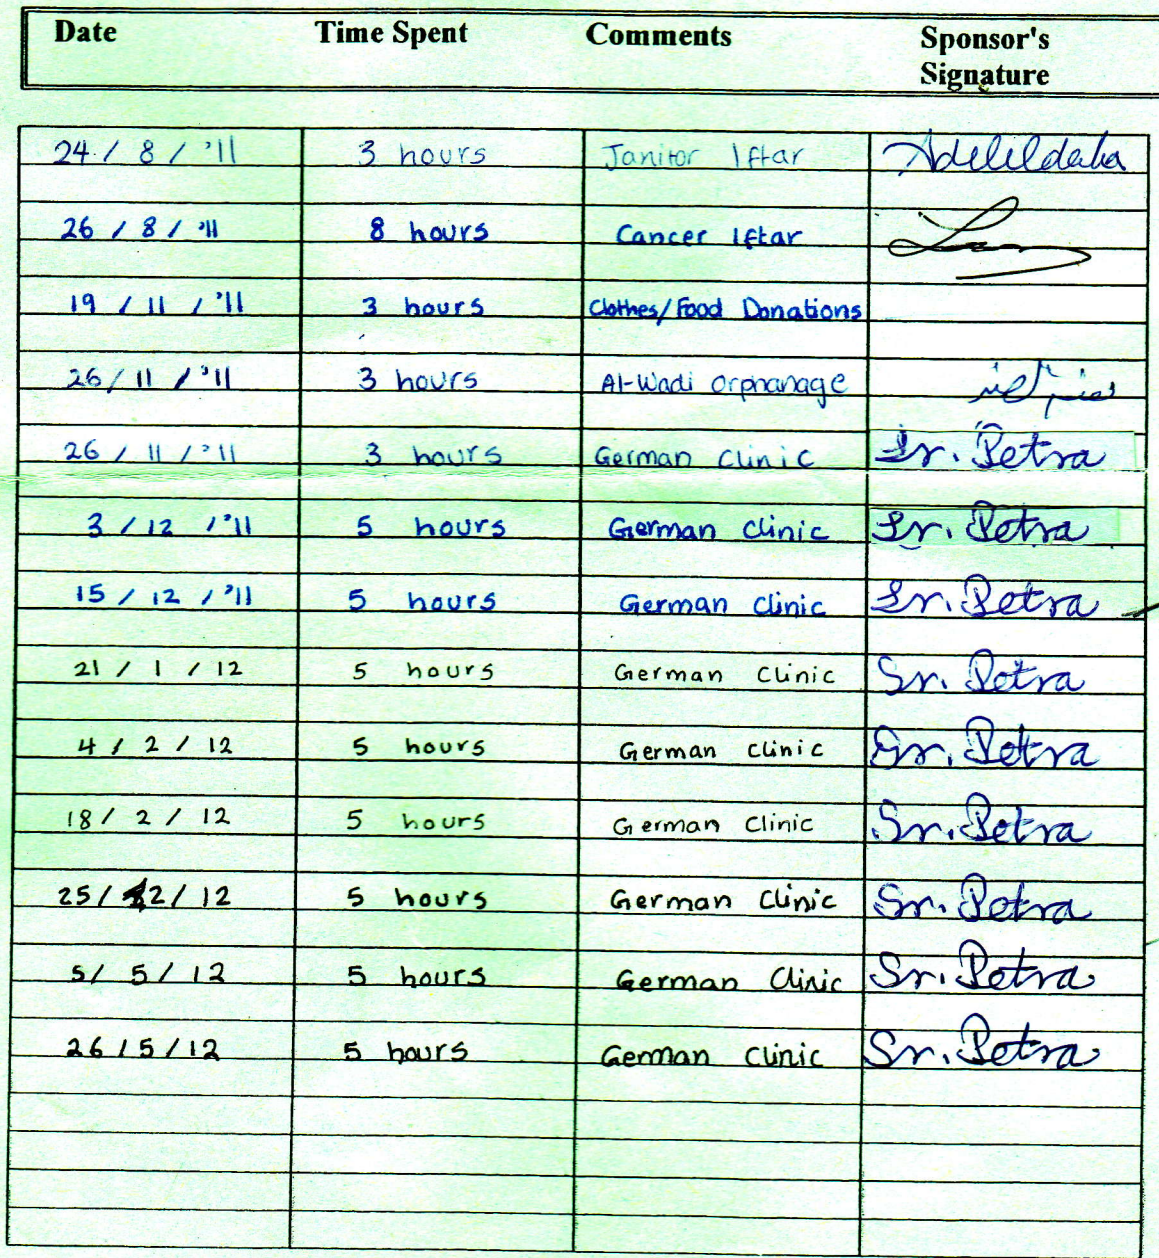 Date Time Spent Comments Sponsor's Signature
24 / 8 / '11 3 hours Janitor Iftar
26 / 8 / '11 8 hours Cancer Iftar
19 / 11 / '11 3 hours Clothes/Food Donations
26 / 11 / '11 3 hours Al-Wadi orphanage
26 / 11 / '11 3 hours German Clinic Sr. Petra
3 / 12 / '11 5 hours German Clinic Sr. Petra
15 / 12 / '11 5 hours German Clinic Sr. Petra
21 / 1 / 12 5 hours German Clinic Sr. Petra
4 / 2 / 12 5 hours German Clinic Sr. Petra
18 / 2 / 12 5 hours German Clinic Sr. Petra
25 / 2 / 12 5 hours German Clinic Sr. Petra
5 / 5 / 12 5 hours German Clinic Sr. Petra
26 / 5 / 12 5 hours German Clinic Sr. Petra